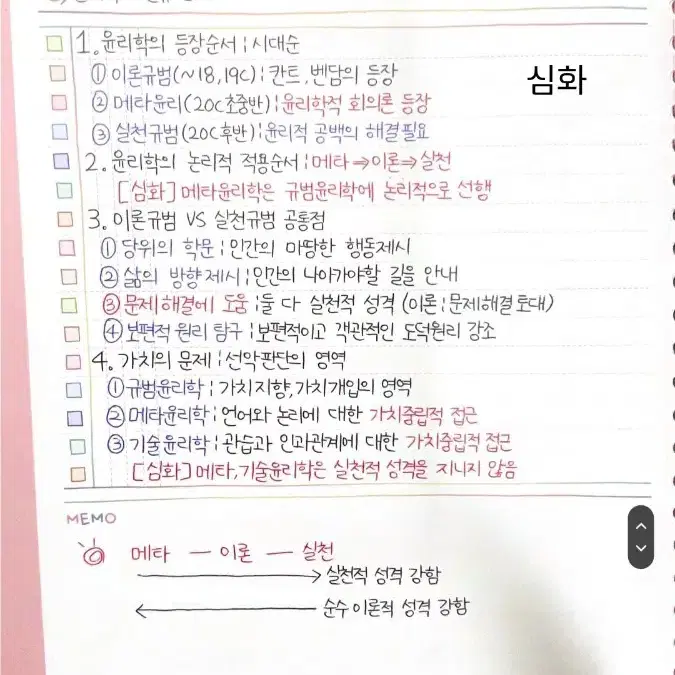 심화
1. 윤리학의 등장순서 ¦ 시대순
① 이론규범(~18,19C) ¦ 칸트, 벤담의 등장
② 메타윤리(20C초중반) ¦ 윤리학적 회의론 등장
③ 실천규범(20C후반) ¦ 윤리적 공백의 해결필요
2. 윤리학의 논리적 적용순서 ¦ 메타⇒이론⇒실천
[심화] 메타윤리학은 규범윤리학에 논리적으로 선행
3. 이론규범 VS 실천규범 공통점
① 당위의 학문 ¦ 인간의 마땅한 행동제시
② 삶의 방향제시 ¦ 인간의 나아가야할 길을 안내
③ 문제해결에 도움 ¦ 둘 다 실천적 성격 (이론 ¦ 문제해결 토대)
④ 보편적 원리 탐구 ¦ 보편적이고 객관적인 도덕원리 강조
4. 가치의 문제 ¦ 선악판단의 영역
① 규범윤리학 ¦ 가치지향, 가치개입의 영역
② 메타윤리학 ¦ 언어와 논리에 대한 가치중립적 접근
③ 기술윤리학 ¦ 관습과 인과관계에 대한 가치중립적 접근
[심화] 메타,기술윤리학은 실천적 성격을 지니지 않음
MEMO
메타 — 이론 — 실천
→ 실천적 성격 강함
← 순수 이론적 성격 강함